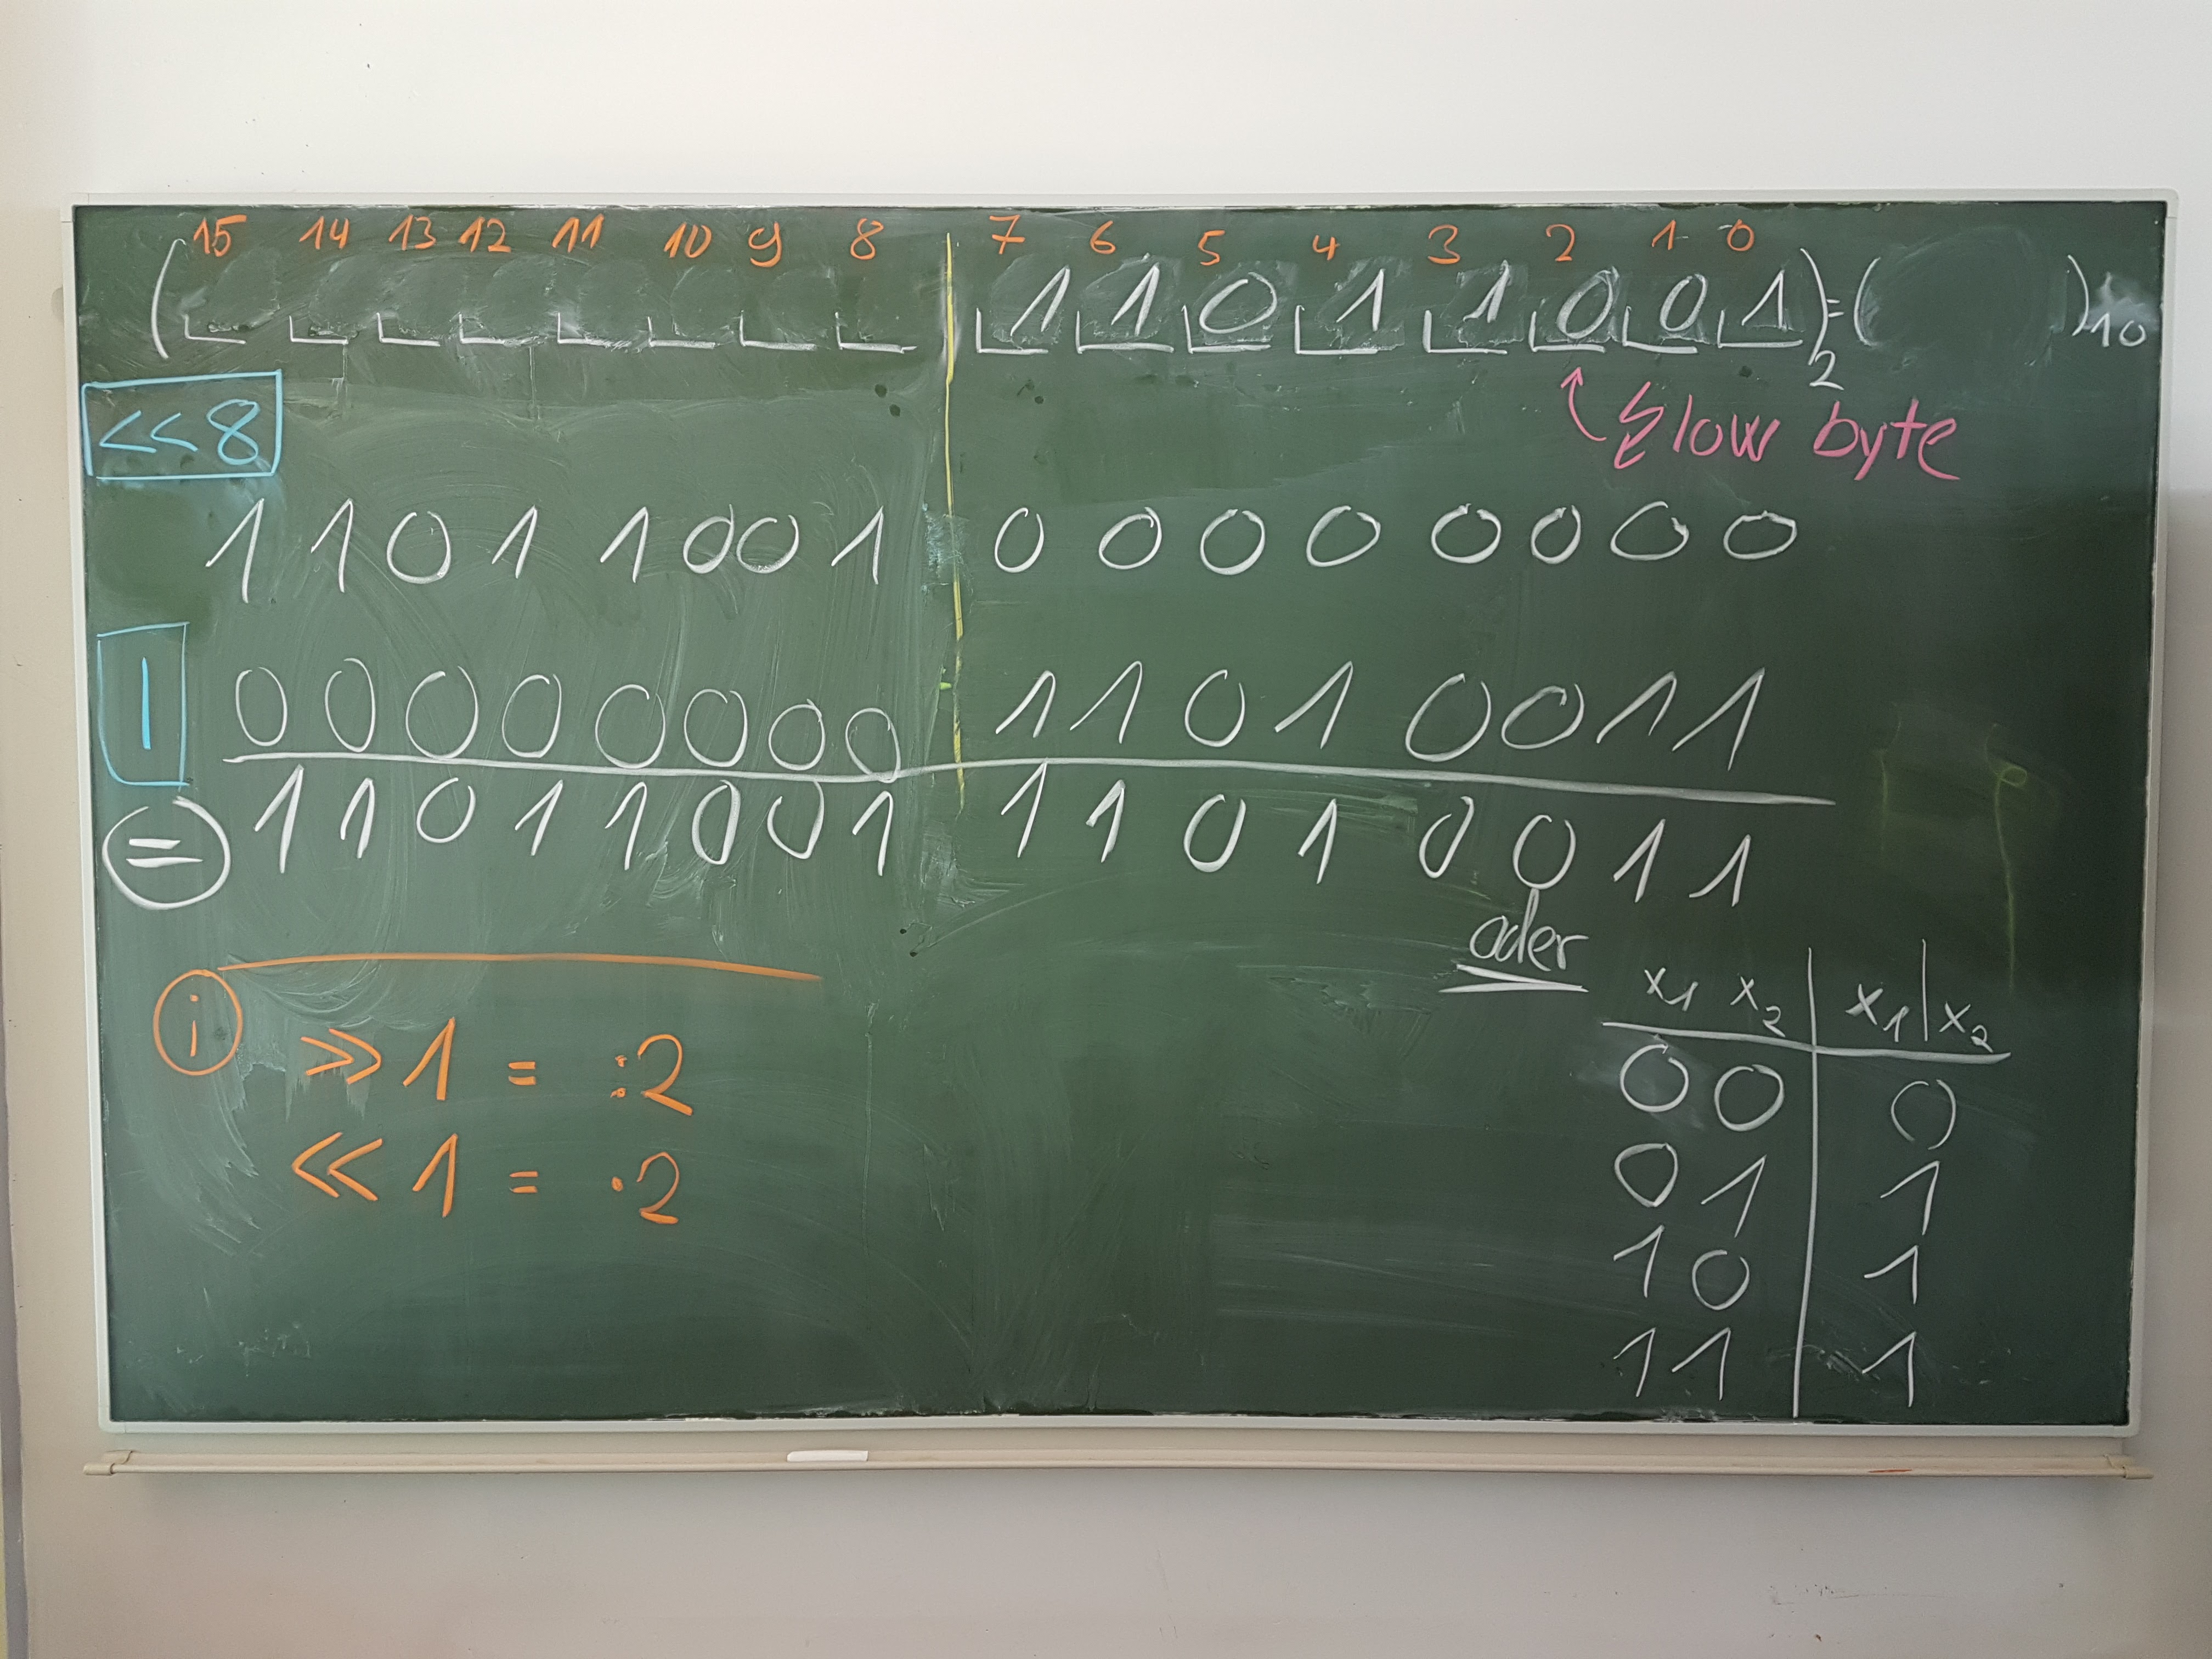 15 14 13 12 11 10 9 8 | 7 6 5 4 3 2 1 0
( | 1 1 0 1 1 0 0 1 )₂ = ( )₁₀
<<8
low byte
1 1 0 1 1 0 0 1 | 0 0 0 0 0 0 0 0
| 0 0 0 0 0 0 0 0 | 1 1 0 1 0 0 1 1
= 1 1 0 1 1 0 0 1 1 1 0 1 0 0 1 1
oder
i
>> 1 = :2
<< 1 = ·2
x₁ x₂ | x₁|x₂
0 0 | 0
0 1 | 1
1 0 | 1
1 1 | 1